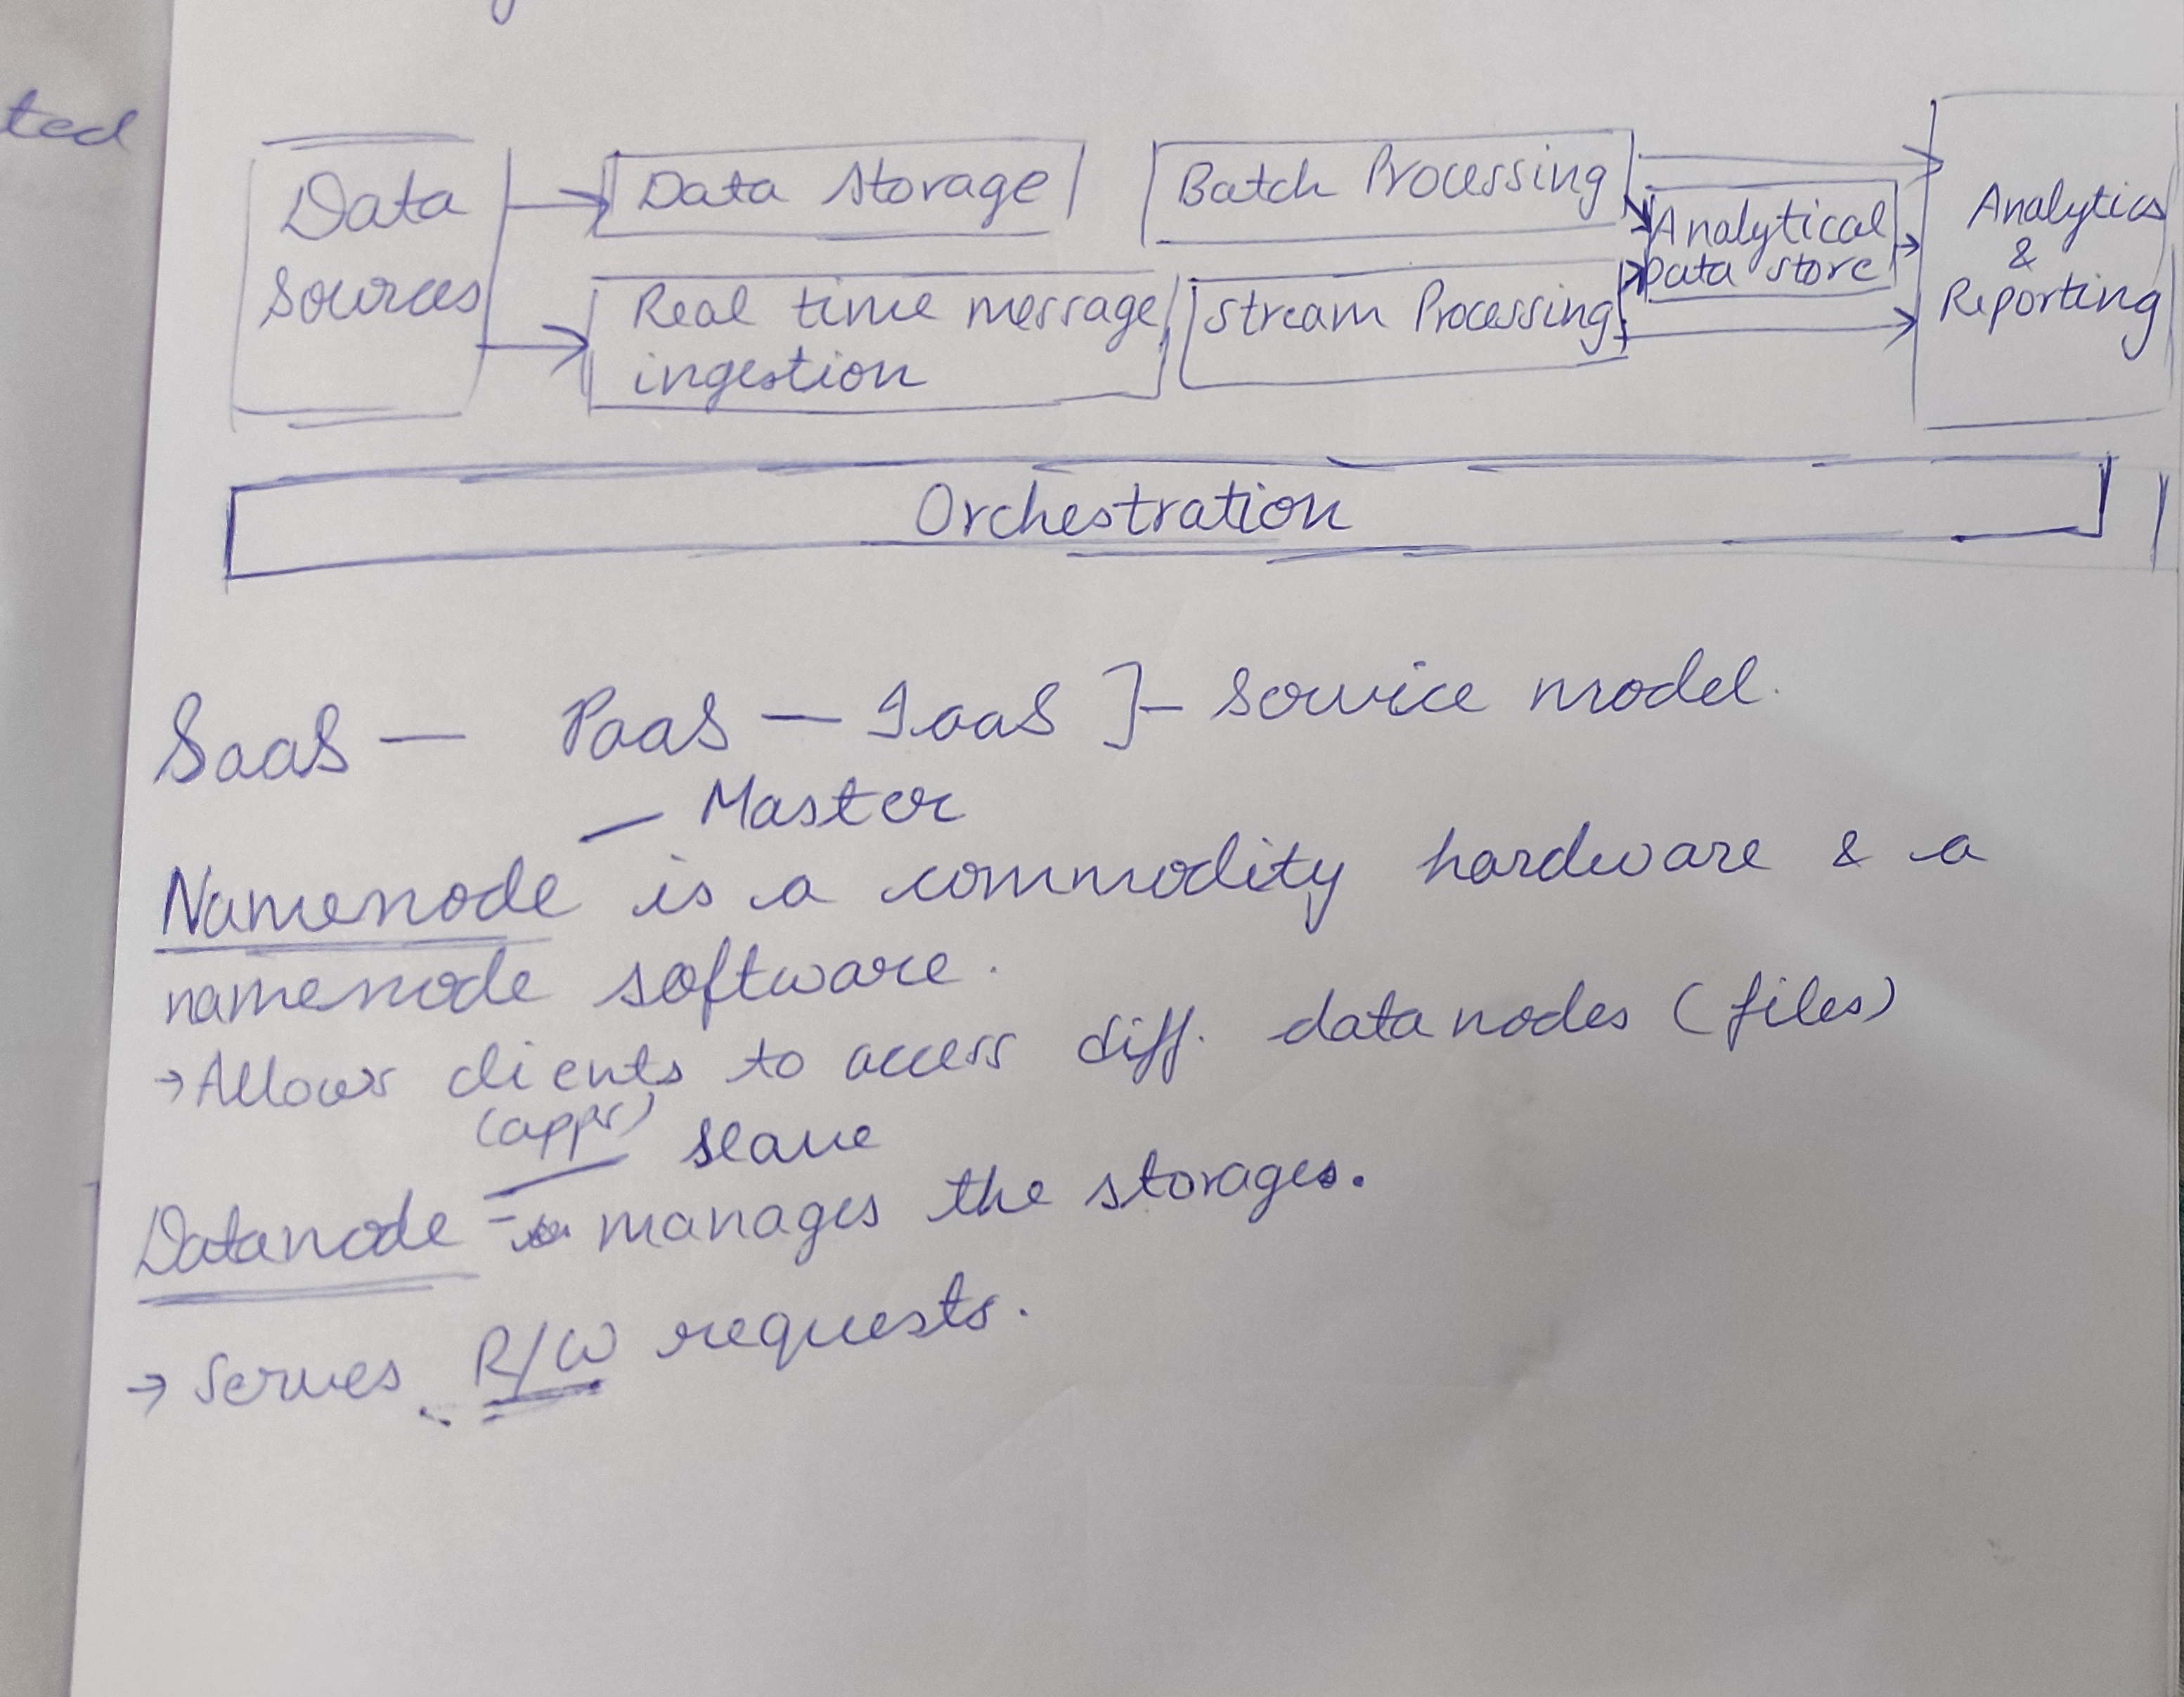 ted
Data
Sources
Data Storage
Real time message
ingestion
Batch Processing
Stream Processing
Analytical
Data store
Analytics
&
Reporting
Orchestration
SaaS — PaaS — IaaS ]- Service model.
— Master
Namenode is a commodity hardware & a
namenode software.
→ Allows clients to access diff. datanodes (files)
(apps) slave
Datanode - manages the storages.
→ Serves R/W requests.